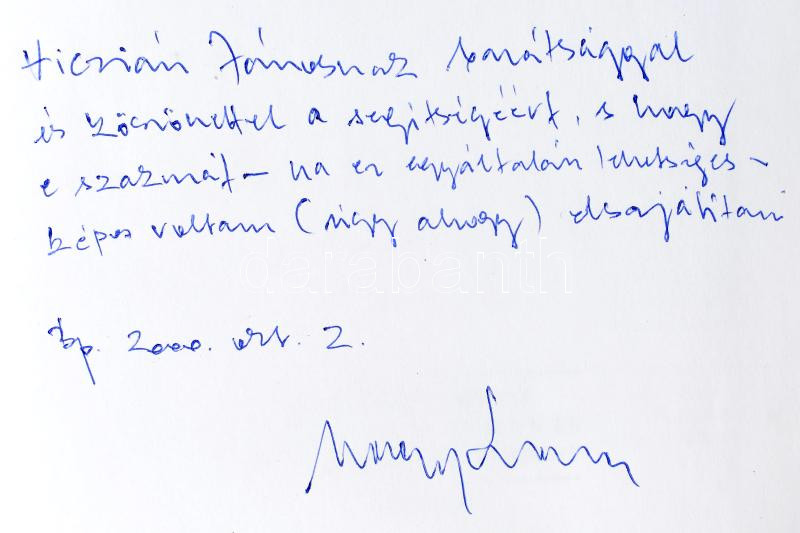 Hiczián Jánosnak barátsággal
és köszönettel a segítségéért, s hogy
e szakmát – ha ez egyáltalán lehetséges –
képes voltam (úgy ahogy) elsajátítani
darabanth
Bp. 2000. okt. 2.